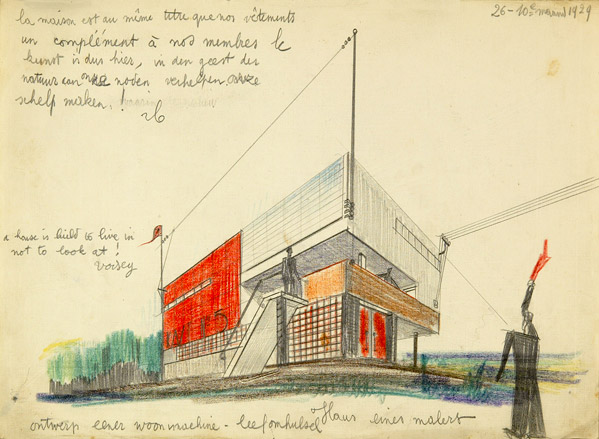 la maison est au même titre que nos vêtements
un complément à nos membres
kunst is dus hier, in den geest der
natuur aan noden verhelpen, onze
schelp maken.!
26-10
1929
a house is build to live in
not to look at!
Voisey
ontwerp eener woonmachine - leefomhulsel Haus eines malers